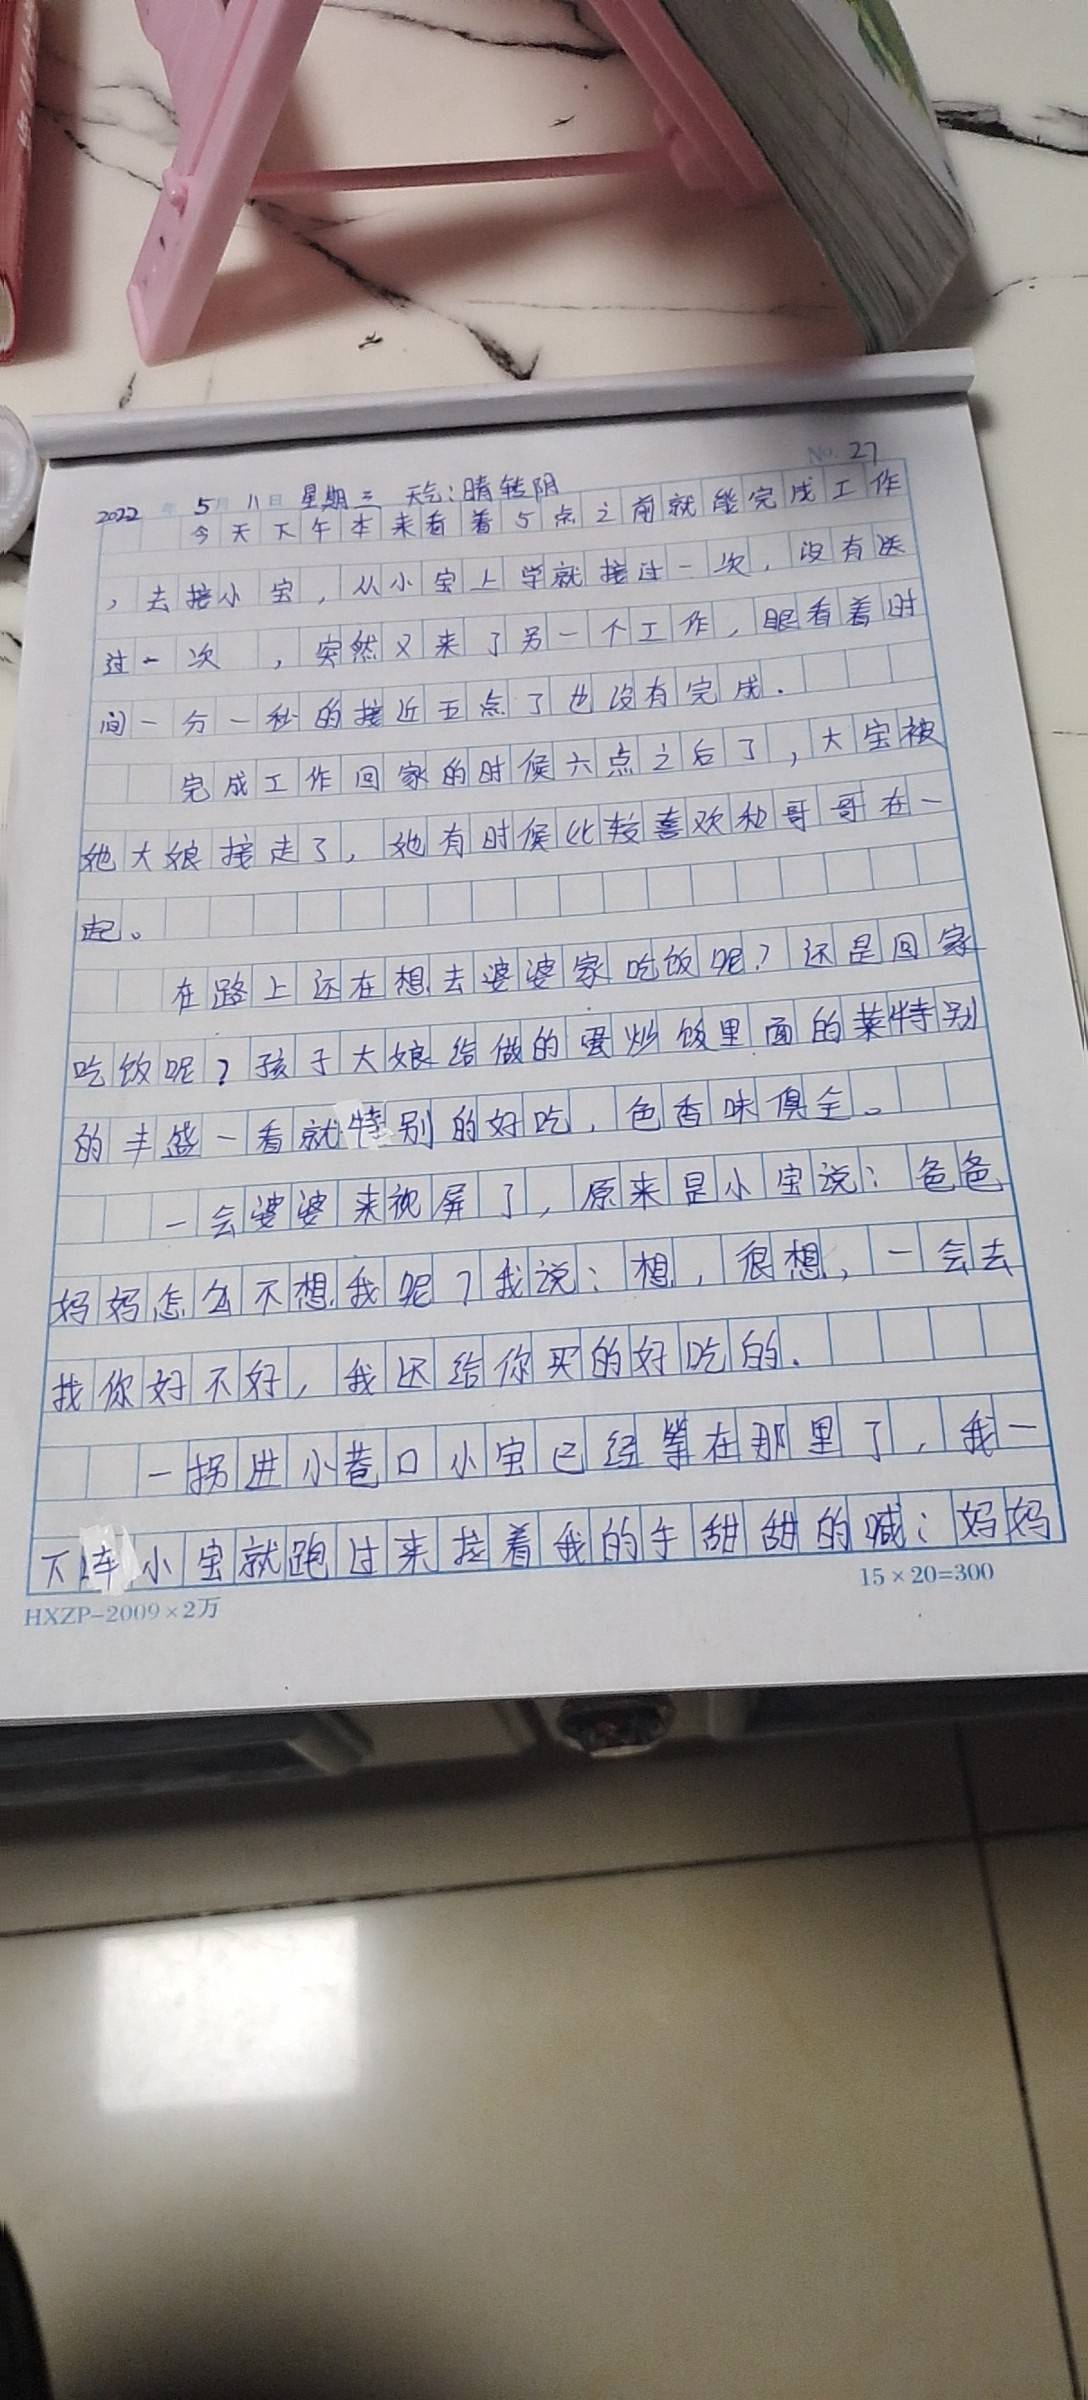 No. 27
2022 年 5 月 11 日 星期三 天气:晴转阴
今天下午本来看着5点之前就能完成工作
,去接小宝,从小宝上学就接过一次,没有送
过一次 ,突然又来了另一个工作,眼看着时
间一分一秒的接近五点了也没有完成.
完成工作回家的时候六点之后了,大宝被
她大娘接走了,她有时候比较喜欢和哥哥在一
起。
在路上还在想去婆婆家吃饭呢?还是回家
吃饭呢?孩子大娘给做的蛋炒饭里面的菜特别
的丰盛一看就特别的好吃,色香味俱全。
一会婆婆来视屏了,原来是小宝说:爸爸
妈妈怎么不想我呢?我说:想,很想,一会去
找你好不好,我还给你买的好吃的.
一拐进小巷口小宝已经等在那里了,我一
下车小宝就跑过来拉着我的手甜甜的喊:妈妈
15×20=300
HXZP-2009×2万